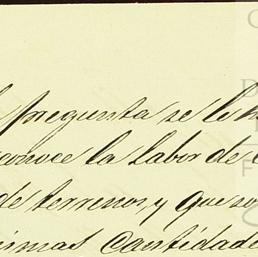 pregunta se le h
conoce la labor de
de terrenos y que no
imas cantidade